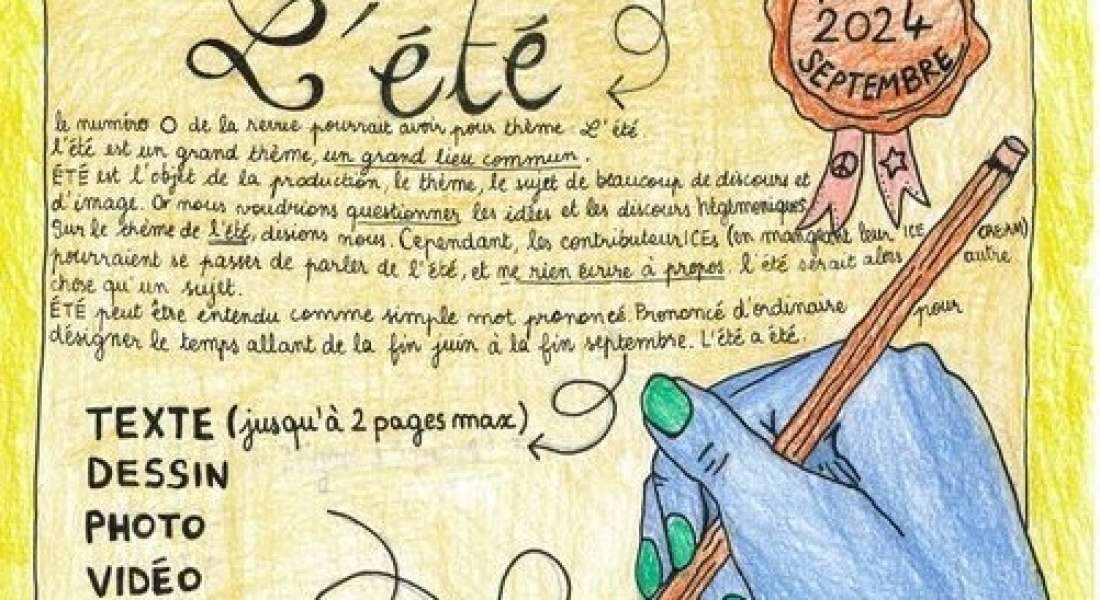 L'été
2024
SEPTEMBRE
le numéro 0 de la revue pourrait avoir pour thème : L'été.
l'été est un grand thème, un grand lieu commun.
ÉTÉ est l'objet de la production, le thème, le sujet de beaucoup de discours et
d'image. Or nous voudrions questionner les idées et les discours hégémoniques.
Sur le thème de l'été, disions nous. Cependant, les contributeurICEs (en mangeant leur ICE CREAM)
pourraient se passer de parler de l'été, et ne rien écrire à propos. l'été serait alors autre
chose qu'un sujet.
ÉTÉ peut être entendu comme simple mot prononcé. Prononcé d'ordinaire pour
désigner le temps allant de la fin juin à la fin septembre. L'été a été.
TEXTE (jusqu'à 2 pages max)
DESSIN
PHOTO
VIDÉO